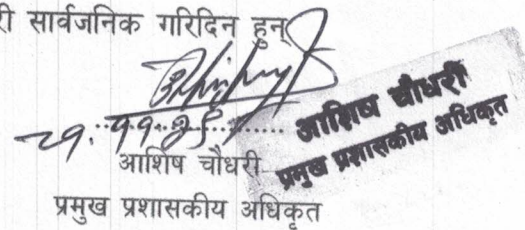 री सार्वजनिक गरिदिन हुन्
आशिष चौधरी
प्रमुख प्रशासकीय अधिकृत
आशिष चौधरी
प्रमुख प्रशासकीय अधिकृत